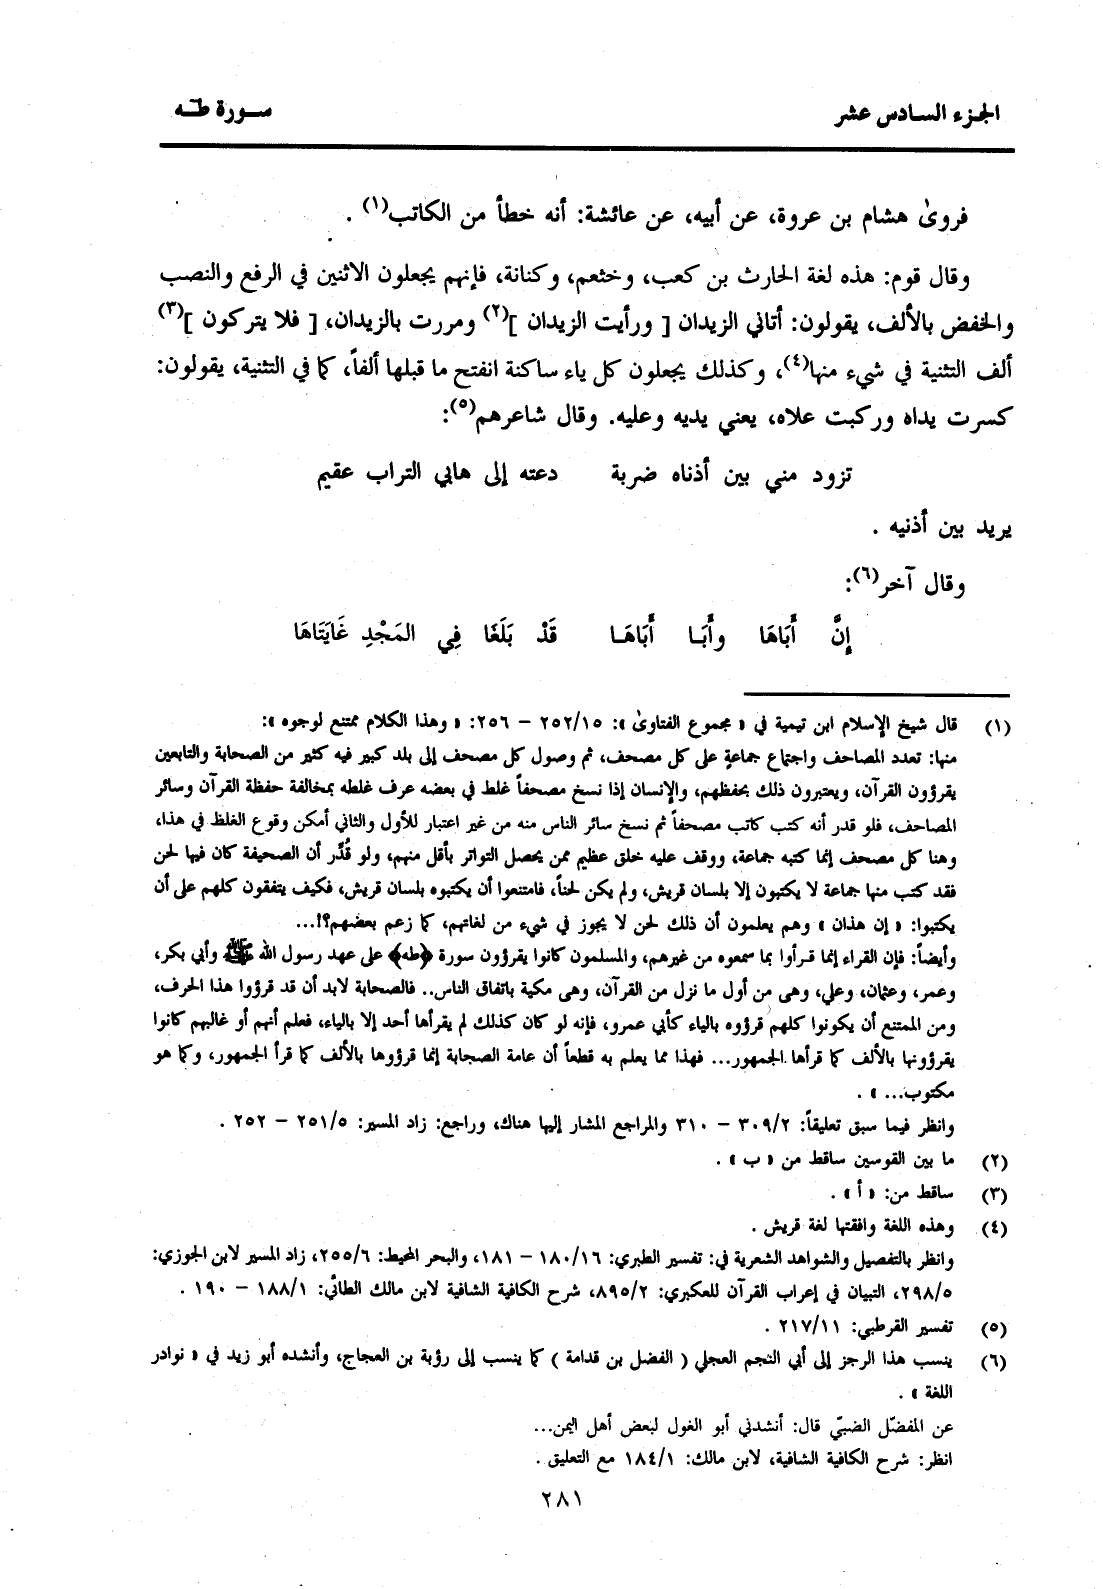 الجزء السادس عشر
سورة طه
فروىٰ هشام بن عروة، عن أبيه، عن عائشة: أنه خطأ من الكاتب(١) .
وقال قوم: هذه لغة الحارث بن كعب، وخثعم، وكنانة، فإنهم يجعلون الاثنين في الرفع والنصب
والخفض بالألف، يقولون: أتاني الزيدان [ ورأيت الزيدان ](٢) ومررت بالزيدان، [ فلا يتركون ](٣)
ألف التثنية في شيء منها(٤)، وكذلك يجعلون كل ياء ساكنة انفتح ما قبلها ألفاً، كما في التثنية، يقولون:
كسرت يداه وركبت علاه، يعني يديه وعليه. وقال شاعرهم(٥):
تزود مني بين أذناه ضربة دعته إلى هابي التراب عقيم
يريد بين أذنيه .
وقال آخر(٦):
إِنَّ أَبَاهَا وأَبَـا أَبَاهَـا قَدْ بَلَغَا فِي المَجْدِ غَايَتَاهَا
(١) قال شيخ الإسلام ابن تيمية في « مجموع الفتاوىٰ »: ٢٥٢/١٥ – ٢٥٦: « وهذا الكلام ممتنع لوجوه »:
منها: تعدد المصاحف واجتماع جماعةٍ على كل مصحف، ثم وصول كل مصحف إلى بلد كبير فيه كثير من الصحابة والتابعين
يقرؤون القرآن، ويعتبرون ذلك بحفظهم، والإنسان إذا نسخ مصحفاً غلط في بعضه عرف غلطه بمخالفة حفظة القرآن وسائر
المصاحف، فلو قدر أنه كتب كاتب مصحفاً ثم نسخ سائر الناس منه من غير اعتبار للأول والثاني أمكن وقوع الغلط في هذا،
وهنا كل مصحف إنما كتبه جماعة، ووقف عليه خلق عظيم ممن يحصل التواتر بأقل منهم، ولو قُدِّر أن الصحيفة كان فيها لحن
فقد كتب منها جماعة لا يكتبون إلا بلسان قريش، ولم يكن لحناً، فامتنعوا أن يكتبوه بلسان قريش، فكيف يتفقون كلهم على أن
يكتبوا: « إن هذان » وهم يعلمون أن ذلك لحن لا يجوز في شيء من لغاتهم، كما زعم بعضهم؟!...
وأيضاً: فإن القراء إنما قرأوا بما سمعوه من غيرهم، والمسلمون كانوا يقرؤون سورة ﴿طه﴾ على عهد رسول الله ﷺ وأبي بكر،
وعمر، وعثمان، وعلي، وهي من أول ما نزل من القرآن، وهي مكية باتفاق الناس.. فالصحابة لابد أن قد قرؤوا هذا الحرف،
ومن الممتنع أن يكونوا كلهم قرؤوه بالياء كأبي عمرو، فإنه لو كان كذلك لم يقرأها أحد إلا بالياء، فعلم أنهم أو غالبهم كانوا
يقرؤونها بالألف كما قرأها الجمهور... فهذا مما يعلم به قطعاً أن عامة الصحابة إنما قرؤوها بالألف كما قرأ الجمهور، وكما هو
مكتوب... » .
وانظر فيما سبق تعليقاً: ٣٠٩/٢ – ٣١٠ والمراجع المشار إليها هناك، وراجع: زاد المسير: ٢٥١/٥ – ٢٥٢ .
(٢) ما بين القوسين ساقط من « ب » .
(٣) ساقط من: « أ » .
(٤) وهذه اللغة وافقتها لغة قريش .
وانظر بالتفصيل والشواهد الشعرية في: تفسير الطبري: ١٨٠/١٦ – ١٨١، والبحر المحيط: ٢٥٥/٦، زاد المسير لابن الجوزي:
٢٩٨/٥، التبيان في إعراب القرآن للعكبري: ٨٩٥/٢، شرح الكافية الشافية لابن مالك الطائي: ١٨٨/١ – ١٩٠ .
(٥) تفسير القرطبي: ٢١٧/١١ .
(٦) ينسب هذا الرجز إلى أبي النجم العجلي ( الفضل بن قدامة ) كما ينسب إلى رؤبة بن العجاج، وأنشده أبو زيد في « نوادر
اللغة » .
عن المفضّل الضبيّ قال: أنشدني أبو الغول لبعض أهل اليمن...
انظر: شرح الكافية الشافية، لابن مالك: ١٨٤/١ مع التعليق .
٢٨١